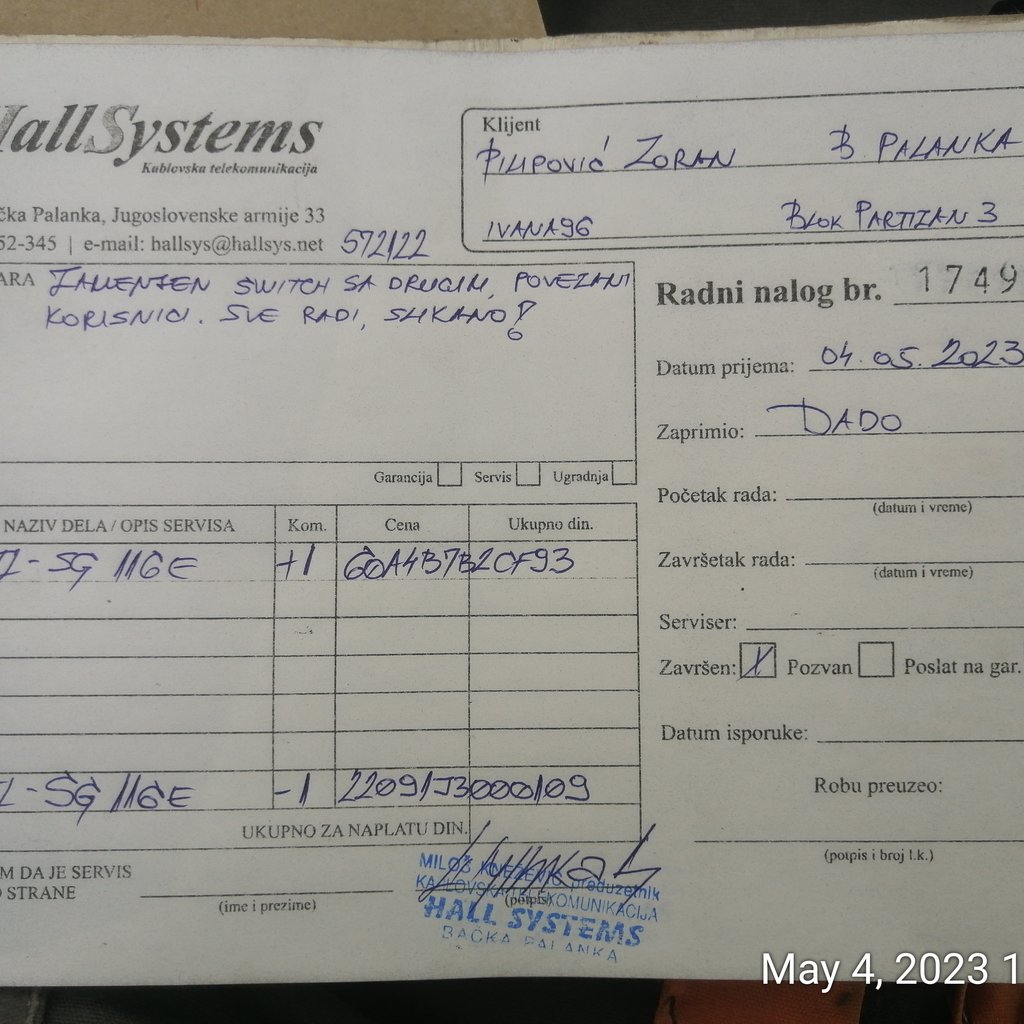 HallSystems
Kablovska telekomunikacija
čka Palanka, Jugoslovenske armije 33
52-345 | e-mail: hallsys@hallsys.net 572/22
Klijent
PILIPOVIĆ ZORAN B PALANKA
IVANA96 BLOK PARTIZAN 3
ARA ZAMENJEN SWITCH SA DRUGIM, POVEZANI
KORISNICI. SVE RADI, SLIKANO!
6
Garancija Servis Ugradnja
Radni nalog br. 1749
Datum prijema: 04.05.2023
Zaprimio: DADO
Početak rada:
(datum i vreme)
Završetak rada:
(datum i vreme)
Serviser:
Završen: X Pozvan Poslat na gar.
Datum isporuke:
Robu preuzeo:
(potpis i broj l.k.)
NAZIV DELA / OPIS SERVISA Kom. Cena Ukupno din.
L-SG 116E +1 60A4B7B2CF93
L-SG 116E -1 22091J3000109
UKUPNO ZA NAPLATU DIN.
M DA JE SERVIS
O STRANE
(ime i prezime)
(potpis)
MILOŠ KNEŽEVIĆ preduzetnik
KABLOVSKA TELEKOMUNIKACIJA
HALL SYSTEMS
BAČKA PALANKA
May 4, 2023 1